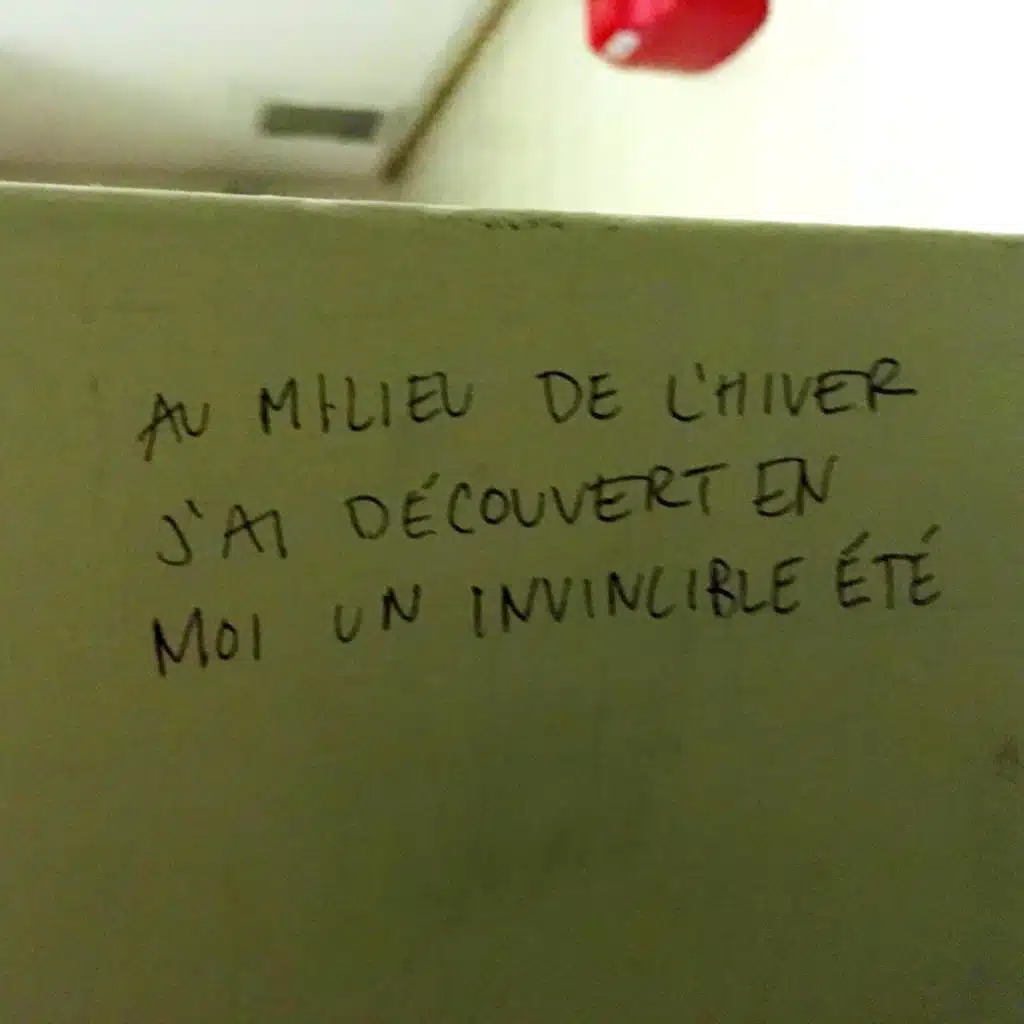 AU MILIEU DE L'HIVER
J'AI DÉCOUVERT EN
MOI UN INVINCIBLE ÉTÉ